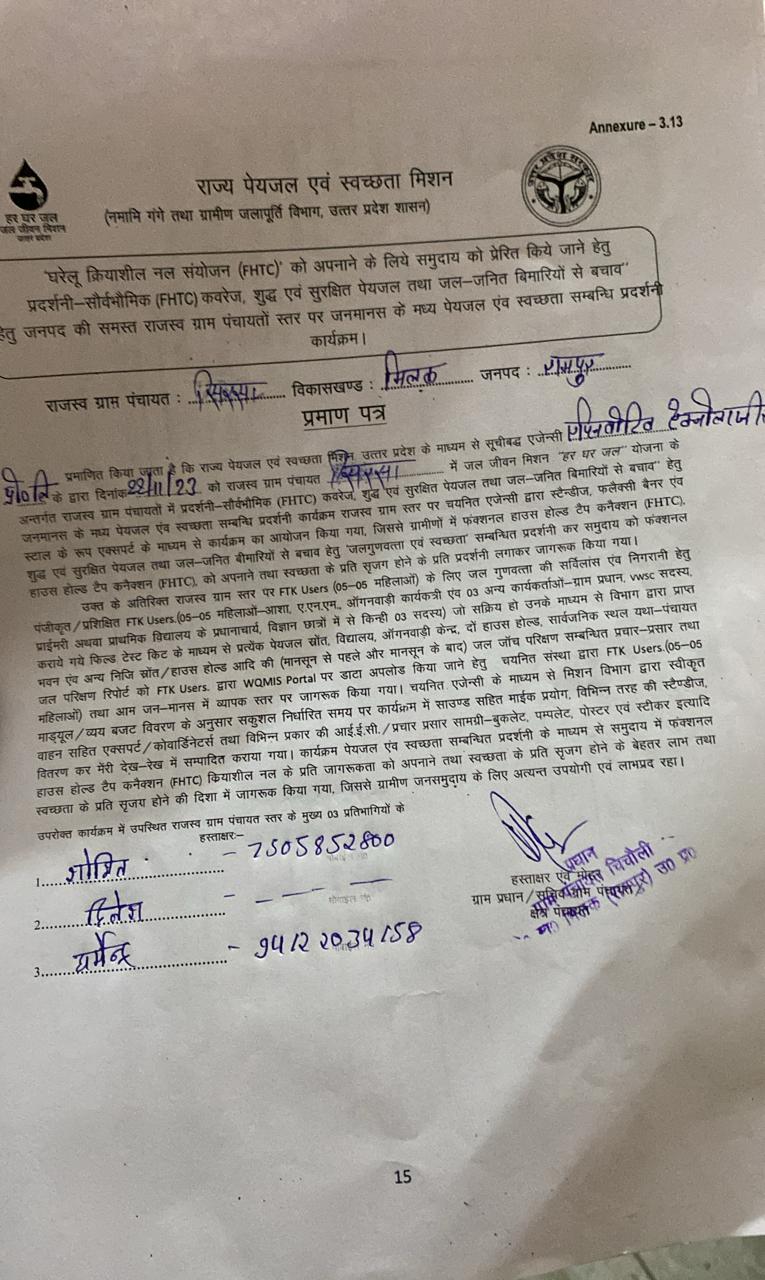 Annexure – 3.13
हर घर जल
जल जीवन मिशन
उत्तर प्रदेश
राज्य पेयजल एवं स्वच्छता मिशन
(नमामि गंगे तथा ग्रामीण जलापूर्ति विभाग, उत्तर प्रदेश शासन)
उत्तर प्रदेश सरकार
"घरेलू क्रियाशील नल संयोजन (FHTC)' को अपनाने के लिये समुदाय को प्रेरित किये जाने हेतु
प्रदर्शनी–सौर्वभौमिक (FHTC) कवरेज, शुद्ध एवं सुरक्षित पेयजल तथा जल–जनित बिमारियों से बचाव"
हेतु जनपद की समस्त राजस्व ग्राम पंचायतों स्तर पर जनमानस के मध्य पेयजल एंव स्वच्छता सम्बन्धि प्रदर्शनी
कार्यक्रम।
राजस्व ग्राम पंचायत : सिरसा विकासखण्ड : मिलक जनपद : रामपुर
प्रमाण पत्र
प्रमाणित किया जाता है कि राज्य पेयजल एवं स्वच्छता मिशन, उत्तर प्रदेश के माध्यम से सूचीबद्ध एजेन्सी टेक्नोलाजीस
प्रा० लि के द्वारा दिनांक 22/11/23 को राजस्व ग्राम पंचायत सिरसा में जल जीवन मिशन "हर घर जल" योजना के
अन्तर्गत राजस्व ग्राम पंचायतों में प्रदर्शनी–सौर्वभौमिक (FHTC) कवरेज, शुद्ध एंव सुरक्षित पेयजल तथा जल–जनित बिमारियों से बचाव" हेतु
जनमानस के मध्य पेयजल एंव स्वच्छता सम्बन्धि प्रदर्शनी कार्यक्रम राजस्व ग्राम स्तर पर चयनित एजेन्सी द्वारा स्टैन्डीज, फलैक्सी बैनर एंव
स्टाल के रूप एक्सपर्ट के माध्यम से कार्यक्रम का आयोजन किया गया, जिससे ग्रामीणों में फंक्शनल हाउस होल्ड टैप कनैक्शन (FHTC),
शुद्ध एवं सुरक्षित पेयजल तथा जल–जनित बीमारियों से बचाव हेतु 'जलगुणवत्ता एंव स्वच्छता' सम्बन्धित प्रदर्शनी कर समुदाय को फंक्शनल
हाउस होल्ड टैप कनैक्शन (FHTC), को अपनाने तथा स्वच्छता के प्रति सृजग होने के प्रति प्रदर्शनी लगाकर जागरूक किया गया।
उक्त के अतिरिक्त राजस्व ग्राम स्तर पर FTK Users (05–05 महिलाओं) के लिए जल गुणवत्ता की सर्विलांस एंव निगरानी हेतु
पंजीकृत/प्रशिक्षित FTK Users.(05–05 महिलाओं-आशा, ए.एन.एम., ऑगनवाड़ी कार्यकत्री एंव 03 अन्य कार्यकर्ताओं–ग्राम प्रधान, vwsc सदस्य,
प्राईमरी अथवा प्राथमिक विद्यालय के प्रधानाचार्य, विज्ञान छात्रों में से किन्ही 03 सदस्य) जो सक्रिय हो उनके माध्यम से विभाग द्वारा प्राप्त
कराये गये फिल्ड टेस्ट किट के माध्यम से प्रत्येक पेयजल स्रोंत, विद्यालय, ऑगनवाड़ी केन्द्र, दों हाउस होल्ड, सार्वजनिक स्थल यथा–पंचायत
भवन एंव अन्य निजि स्रोंत/हाउस होल्ड आदि की (मानसून से पहले और मानसून के बाद) जल जॉच परिक्षण सम्बन्धित प्रचार–प्रसार तथा
जल परिक्षण रिपोर्ट को FTK Users. द्वारा WQMIS Portal पर डाटा अपलोड किया जाने हेतु चयनित संस्था द्वारा FTK Users.(05–05
महिलाओं) तथा आम जन–मानस में व्यापक स्तर पर जागरूक किया गया। चयनित एजेन्सी के माध्यम से मिशन विभाग द्वारा स्वीकृत
माड्यूल/व्यय बजट विवरण के अनुसार सकुशल निर्धारित समय पर कार्यक्रम में साउण्ड सहित माईक प्रयोग, विभिन्न तरह की स्टैण्डीज,
वाहन सहित एक्सपर्ट/कोवार्डिनेटर्स तथा विभिन्न प्रकार की आई.ई.सी./प्रचार प्रसार सामग्री–बुकलेट, पम्पलेट, पोस्टर एंव स्टीकर इत्यादि
वितरण कर मेंरी देख–रेख में सम्पादित कराया गया। कार्यक्रम पेयजल एंव स्वच्छता सम्बन्धित प्रदर्शनी के माध्यम से समुदाय में फंक्शनल
हाउस होल्ड टैप कनैक्शन (FHTC) कियाशील नल के प्रति जागरूकता को अपनाने तथा स्वच्छता के प्रति सृजग होने के बेहतर लाभ तथा
स्वच्छता के प्रति सृजग होने की दिशा में जागरूक किया गया, जिससे ग्रामीण जनसमुदाय के लिए अत्यन्त उपयोगी एवं लाभप्रद रहा।
उपरोक्त कार्यक्रम में उपस्थित राजस्व ग्राम पंचायत स्तर के मुख्य 03 प्रतिभागियों के
हस्ताक्षर:–
1. शोभित – 7505852800
2. दिनेश – – – – मोबाइल नं०
3. धर्मेन्द्र – 9412 20 34 158
हस्ताक्षर एवं मोहर
ग्राम प्रधान/सचिव ग्राम पंचायत
क्षेत्र पंचायत
प्रधान
ग्राम पंचायत चिचौली
मिलक (रामपुर) उ० प्र०
15